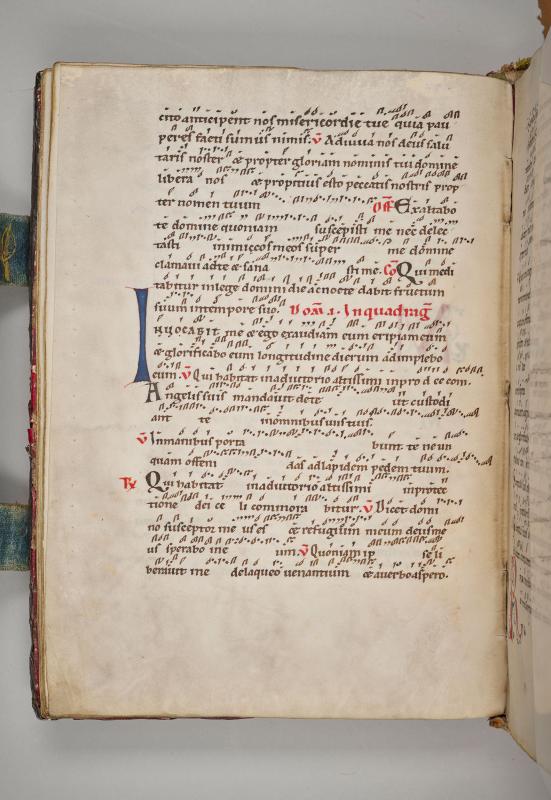 cito anticipent nos misericordie tue quia pau
peres facti sumus nimis. V Adiuua nos deus salu
taris noster & propter gloriam nominis tui domine
libera nos & propitius esto peccatis nostris prop
ter nomen tuum Off Exaltabo
te domine quoniam suscepisti me nec delec
tasti inimicos meos super me domine
clamaui ad te & sana sti me. Co Qui medi
tabitur in lege domini die ac nocte dabit fructum
suum in tempore suo. Dom̄ .i. In quadrag̅
INUOCABIT me & ego exaudiam eum eripiam eum
& glorificabo eum longitudine dierum adimplebo
eum. V Qui habitat in adiutorio altissimi in pro d ce com.
Angelis suis mandauit de te ut custodi
ant te in omnibus uiis tuis.
V In manibus porta bunt te ne un
quam offen das ad lapidem pedem tuum.
Tr Qui habitat in adiutorio altissimi in protec
tione dei ce li commora bitur. V Dicet domi
no susceptor meus es & refugium meum deus me
us sperabo in e um. V Quoniam ip se li
berauit me de laqueo uenantium & a uerbo aspero.